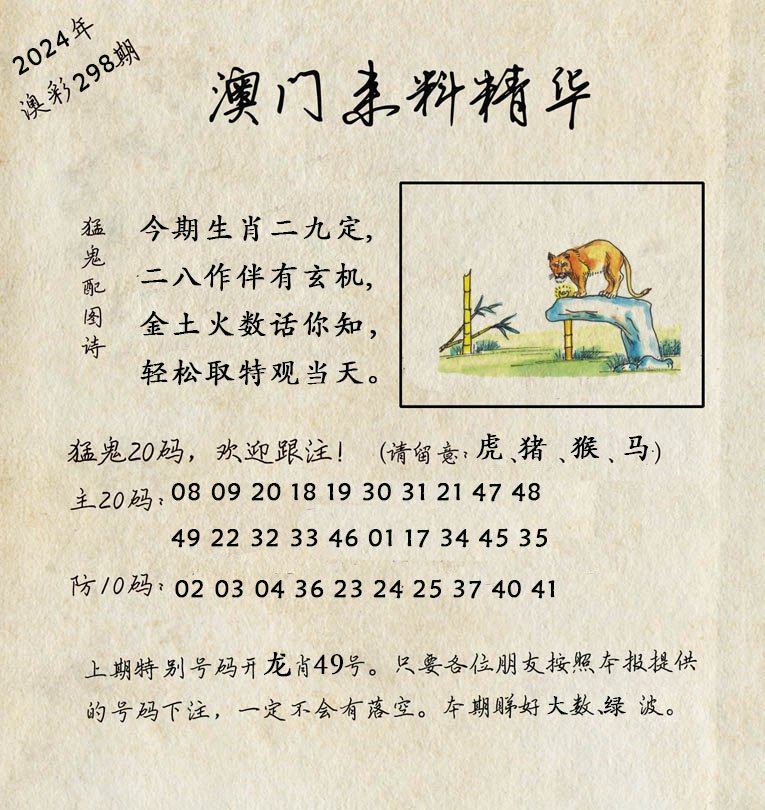 2024年
澳彩298期
澳门来料精华
猛鬼配图诗
今期生肖二九定,
二八作伴有玄机,
金土火数话你知,
轻松取特观当天。
猛鬼20码,欢迎跟注! (请留意:虎、猪、猴、马)
主20码: 08 09 20 18 19 30 31 21 47 48
49 22 32 33 46 01 17 34 45 35
防10码: 02 03 04 36 23 24 25 37 40 41
上期特别号码开龙肖49号。只要各位朋友按照本报提供
的号码下注,一定不会有落空。本期睇好大数、绿 波。